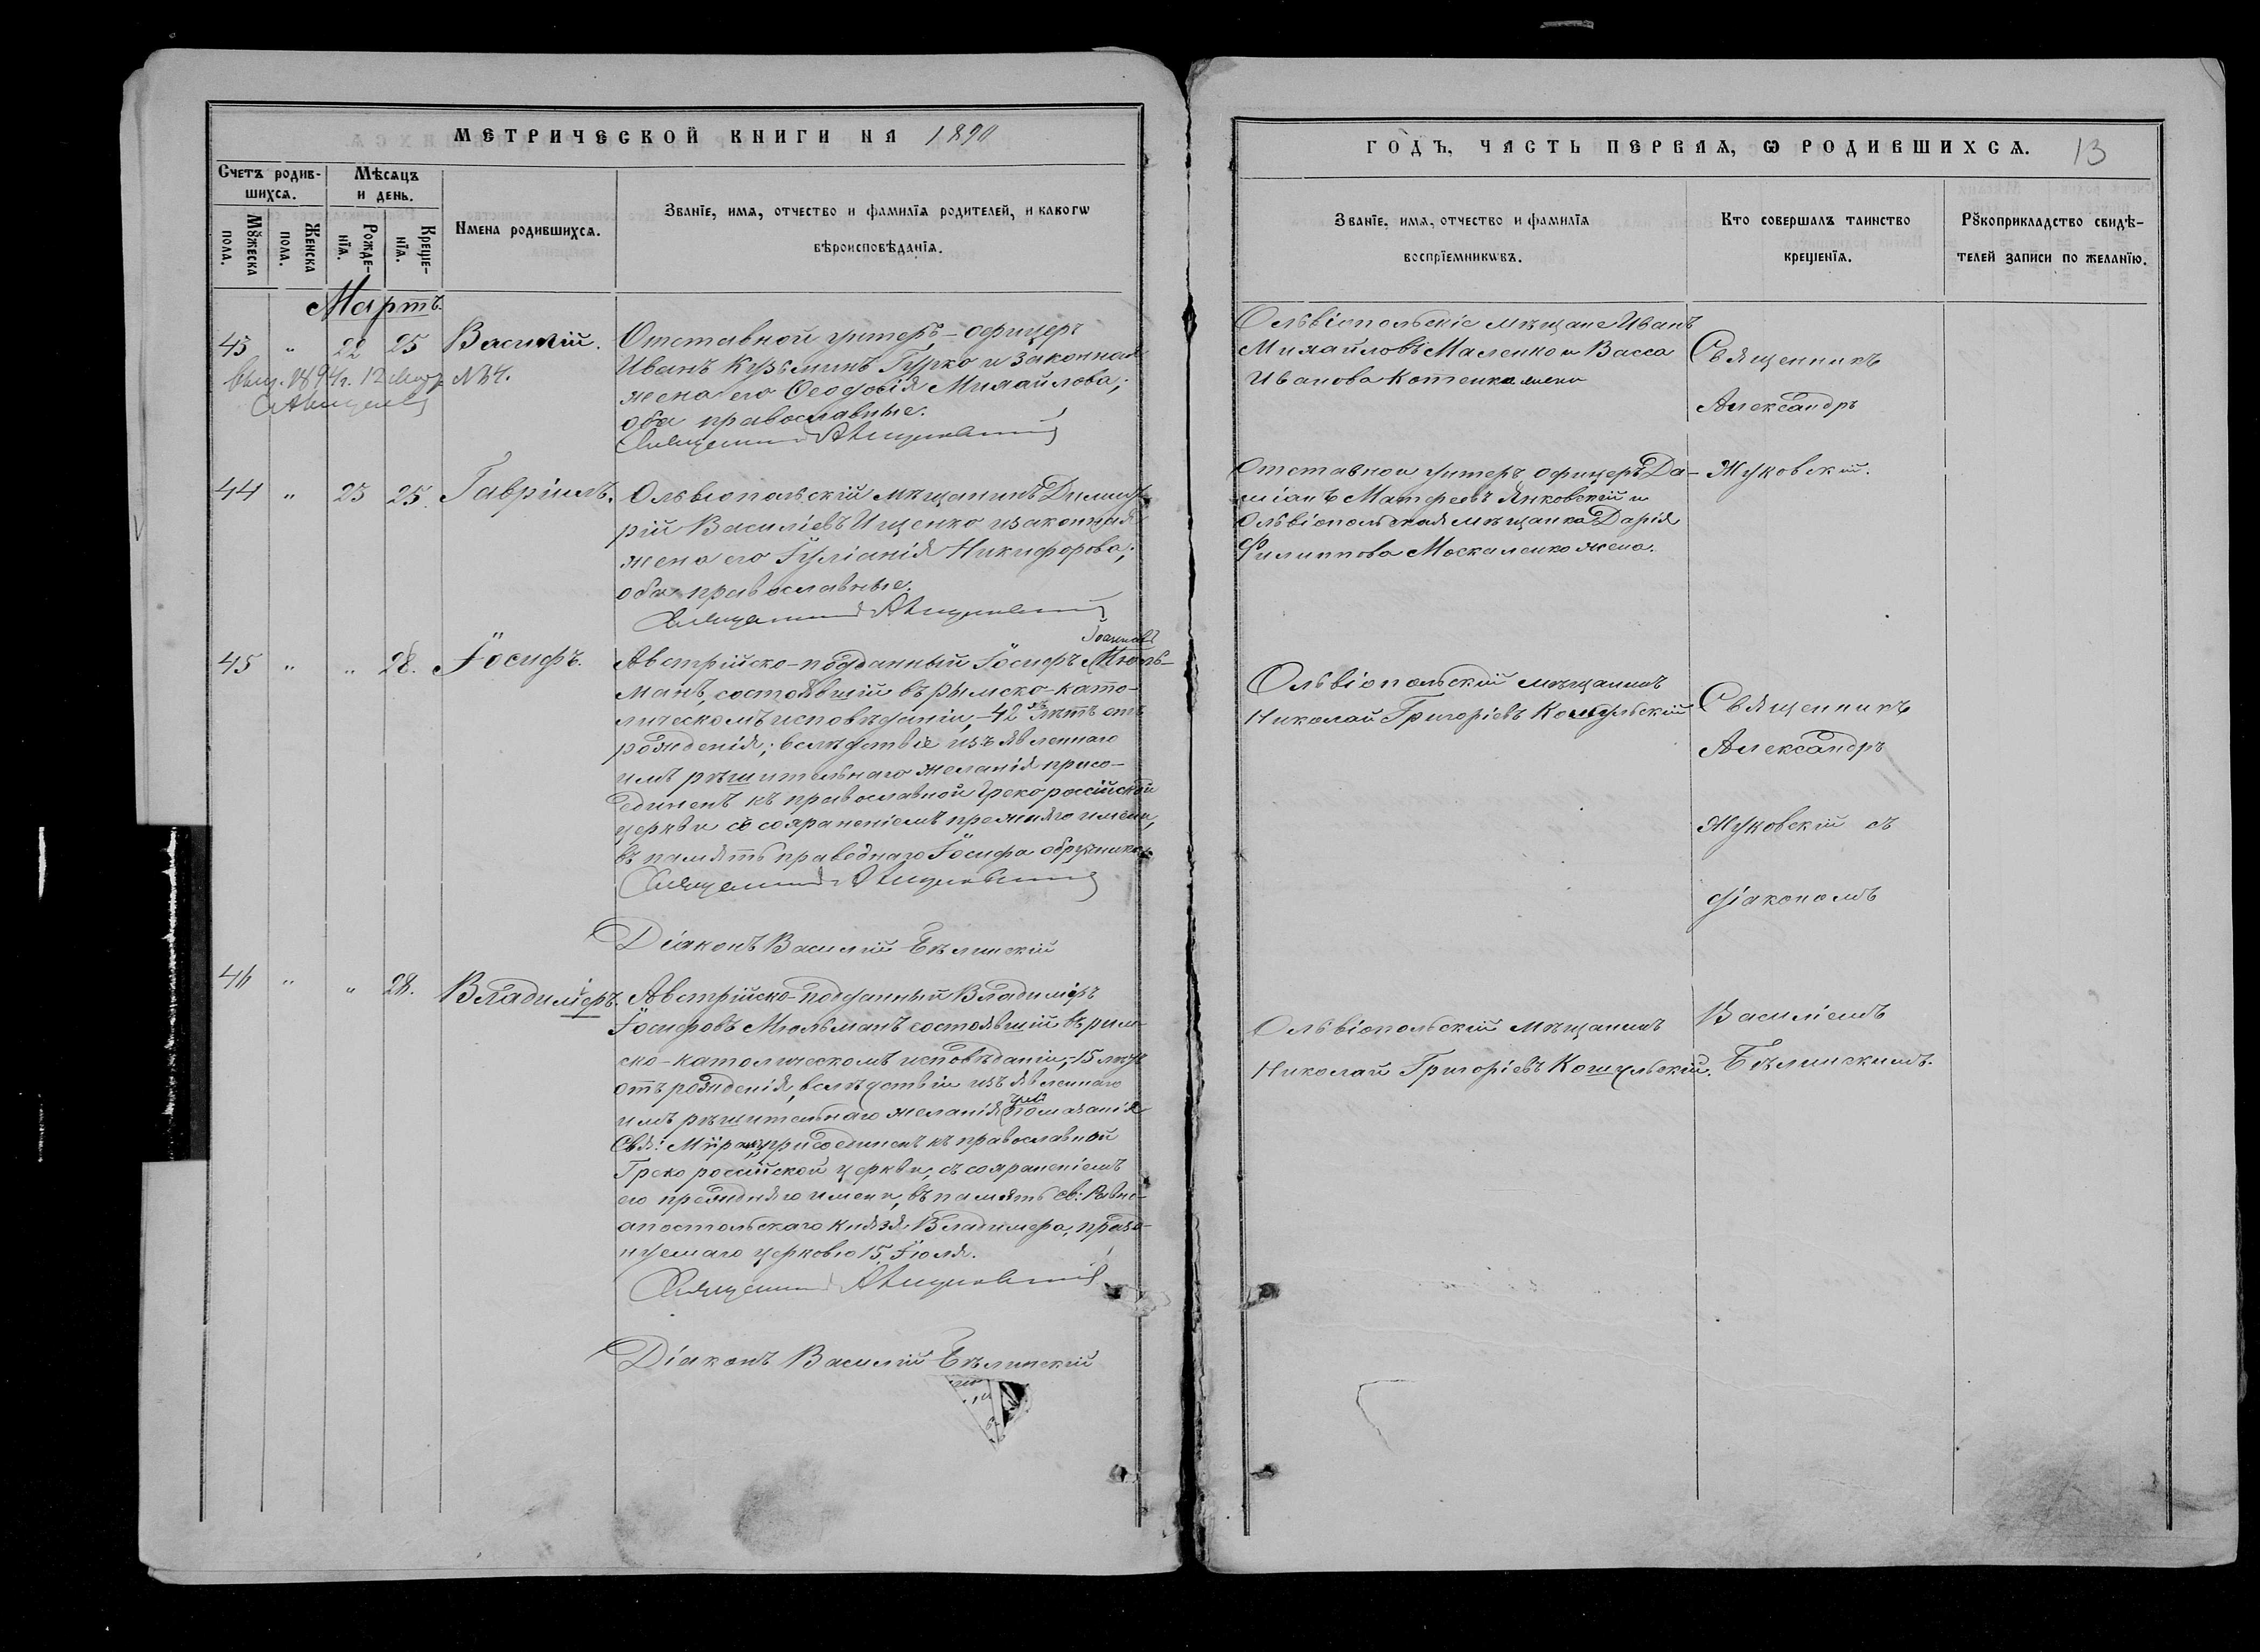 МЕТРИЧЕСКОЙ КНИГИ НА 1890
Счетъ родив-
шихся.
Мѣсяцъ
и день.
Имена родившихся.
Званїе, имя, отчество и фамилїя родителей, и какогѡ
вѣроисповѣданїя.
Мꙋжеска
пола.
Женска
пола.
Рожде-
нїя.
Креще-
нїя.
Мартъ.
43 " 22 25 Василій. Отставной унтеръ-офицеръ
Иванъ Кузьминъ Гурко и законная
жена его Ѳеодосія Михайлова;
оба православные.
Выд. 1894 г. 12 № 74.
44 " 23 25. Гавріилъ. Ольвіопольскій мѣщанинъ Димит-
рій Василіевъ Ищенко и законная
жена его Іуліанія Никифорова;
оба православные.
45 " " 28. Іосифъ. Австрійско-подданный Іосифъ Іоанновъ Мюль-
манъ, состоявшій въ римско-като-
лическомъ исповѣданіи, 42 лѣтъ отъ
рожденія; вслѣдствіе изъявленнаго
имъ рѣшительнаго желанія присо-
единенъ къ православной Грекороссійской
церкви съ сохраненіемъ прежняго имени,
въ память праведнаго Іосифа обручника.
Діаконъ Василій Бѣлинскій
46 " " 28. Владиміръ. Австрійско-подданный Владиміръ
Іосифовъ Мюльманъ состоявшій въ рим-
ско-католическомъ исповѣданіи, 15 лѣтъ
отъ рожденія, вслѣдствіи изъявленнаго
имъ рѣшительнаго желанія помазанія
Свя: Мѵра присоединенъ къ православной
Греко россійской церкви, съ сохраненіемъ
его преждняго имени, въ память св: Равно-
апостольскаго князя Владимера, празд-
нуемаго церковію 15 Іюля.
Діаконъ Василій Бѣлинскій
ГОДЪ, ЧАСТЬ ПЕРВАЯ, Ѡ РОДИВШИХСЯ. 13
Званїе, имя, отчество и фамилїя
воспрїемникѡвъ.
Кто совершалъ таинство
крещенїя.
Рꙋкоприкладство свидѣ-
телей записи по желанїю.
Ольвіопольскіе мѣщане Иванъ
Михайловъ Маленко и Васса
Иванова Котенко
Священникъ
Александръ
Жуковскій.
Отставной унтеръ офицеръ Да-
міанъ Матфеевъ Янковскій и
Ольвіопольская мѣщанка Дарія
Филиппова Москаленко жена.
Ольвіопольскій мѣщанинъ
Николай Григоріевъ Кошульскій
Священникъ
Александръ
Жуковскій съ
діакономъ
Василіемъ
Бѣлинскимъ.
Ольвіопольскій мѣщанинъ
Николай Григоріевъ Кошульскій.